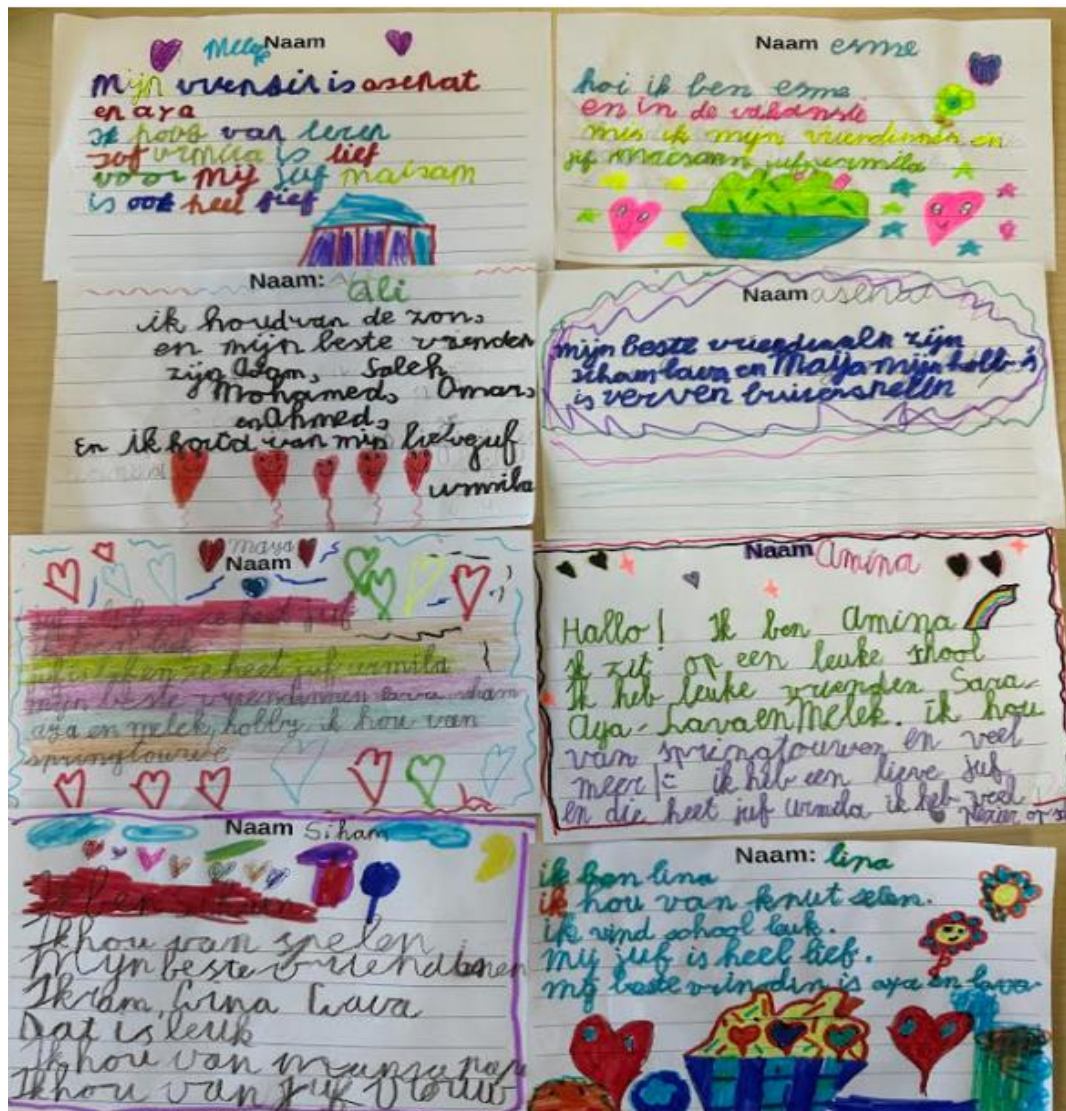 Naam Melek
mijn vrensin is asenat
en aya
ik houb van leren
Juf urmila is lief
voor mij juf maisam
is ook heel lief
Naam esme
hoi ik ben esme
en in de vakanste
mis ik mijn vriendinnen en
juf maisam juf urmila
Naam: ali
ik houd van de zon,
en mijn beste vrienden
zijn Adam, Saleh
Mohamed, Omar,
en Ahmed,
En ik houd van mijn lieve juf
urmila
Naam asenat
mijn beste vriendinneln zijn
siham lava en Maya mijn hobb is
is verven
maya
Naam
juf is lief en ze heet juf urmila
mijn beste vriendinnen lava siham
aya en melek, hobby ik hou van
springtouwe
Naam Amina
Hallo! Ik ben Amina
ik zit op een leuke school
Ik heb leuke vrienden Sara-
Aya-Lava en Melek. ik hou
van springtouwen en veel
meer ik heb een lieve juf
en die heet juf urmila ik heb veel
plezier op
Naam Siham
Ik ben siham
Ik hou van spelen
Mijn beste vriendinnen
Ikram, Lina Lava
Dat is leuk
Ik hou van mama
Ik hou van juf
Naam: lina
ik ben lina
ik hou van knutselen.
ik vind school leuk.
mij juf is heel lief.
mij beste vrindin is aya en lava